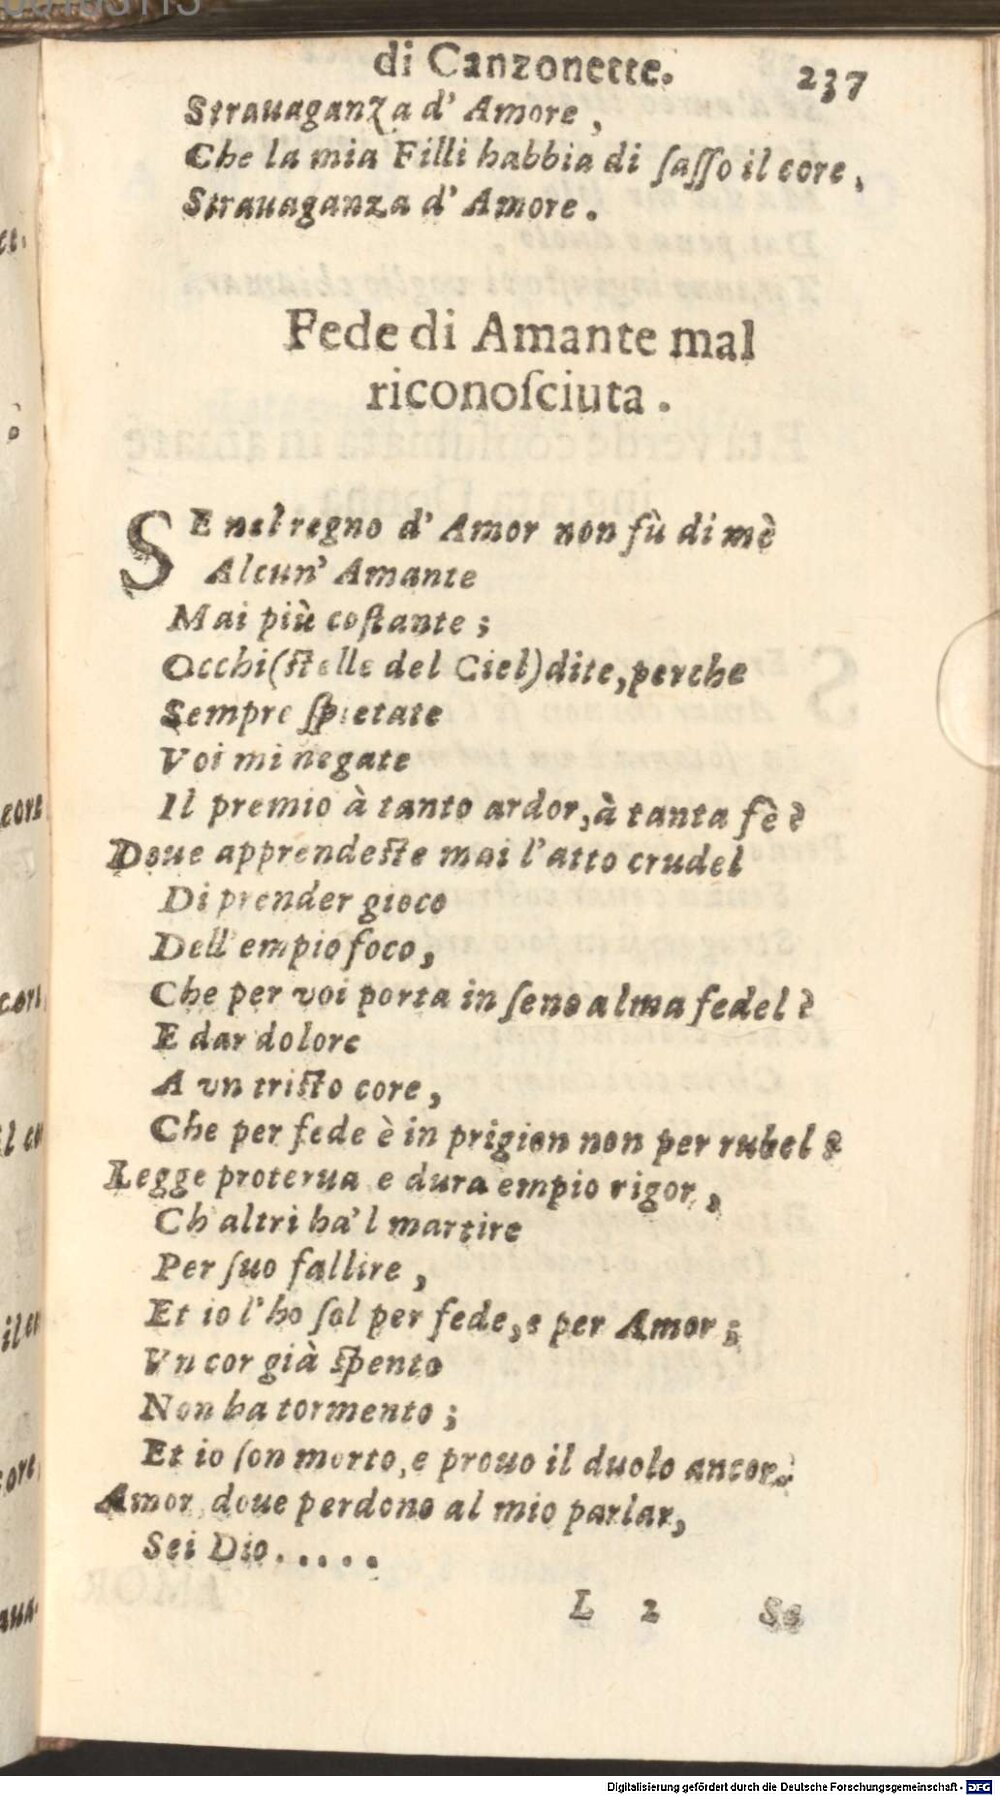 di Canzonette. 237
Strauaganza d' Amore,
Che la mia Filli habbia di ſaſſo il core,
Strauaganza d' Amore.
Fede di Amante mal
riconoſciuta.
SE nel regno d' Amor non fù di mè
Alcun' Amante
Mai più coſtante;
Occhi (ſtelle del Ciel) dite, perche
Sempre ſpietate
Voi mi negate
Il premio à tanto ardor, à tanta fè?
Doue apprendeſte mai l'atto crudel
Di prender gioco
Dell' empio foco,
Che per voi porta in ſeno alma fedel?
E dar dolore
A vn triſto core,
Che per fede è in prigion non per rubel?
Legge proterua e dura empio rigor,
Ch' altri ha'l martire
Per ſuo fallire,
Et io l'ho ſol per fede, e per Amor;
Vn cor già ſpento
Non ha tormento;
Et io ſon morto, e prouo il duolo ancor.
Amor, doue perdono al mio parlar,
Sei Dio.....
L 2 Se
Digitalisierung gefördert durch die Deutsche Forschungsgemeinschaft - DFG